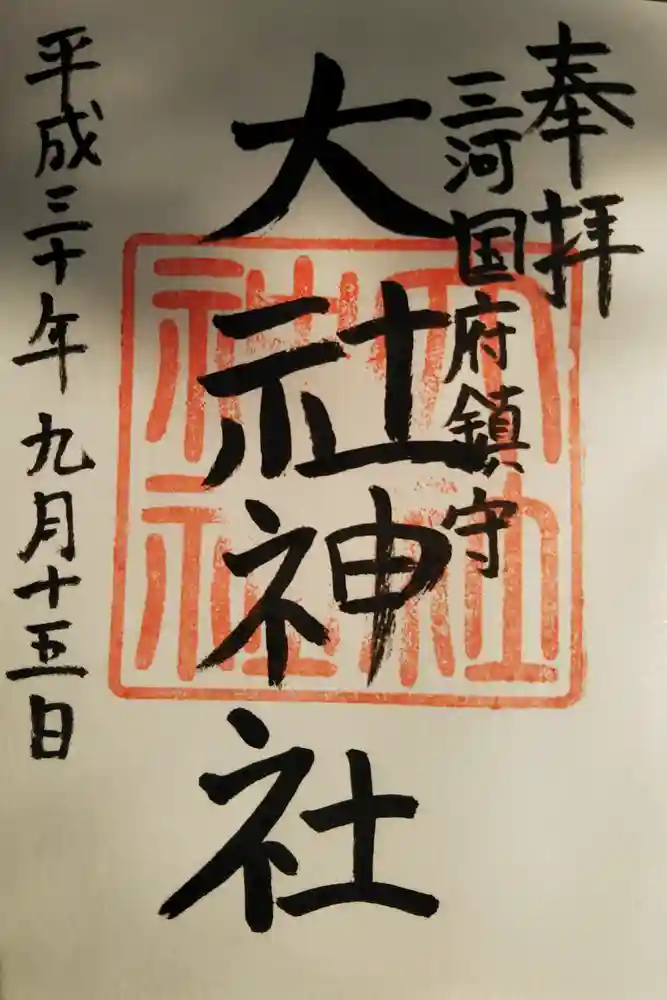 奉拝
三河国府鎮守
大社神社
平成三十年九月十五日
大社神社